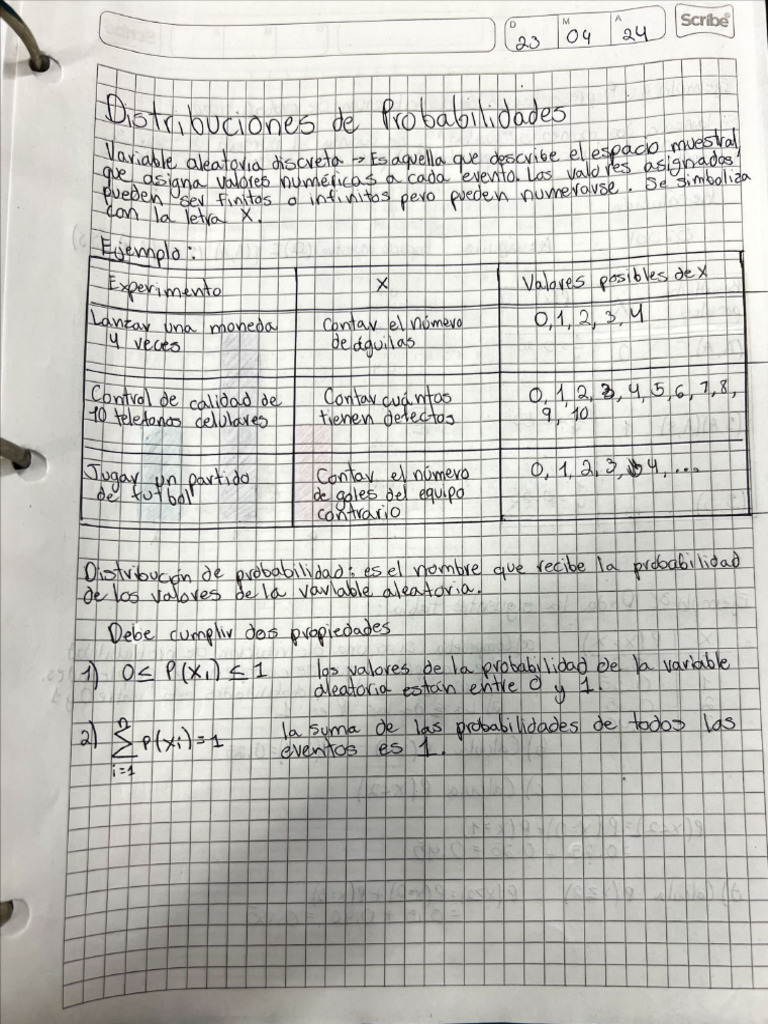 D M A
23 04 24
Scribe
Distribuciones de Probabilidades
Variable aleatoria discreta → Es aquella que describe el espacio muestral,
que asigna valores numéricas a cada evento. Los valores asignados
pueden ser finitos o infinitos pero pueden numerarse. Se simboliza
con la letra X.
Ejemplo:
Experimento
X
Valores posibles de x
Lanzar una moneda
4 veces
Contar el número
de águilas
0, 1, 2, 3, 4
Control de calidad de
10 telefonos celulares
Contar cuántos
tienen defectos
0, 1, 2, 3, 4, 5, 6, 7, 8,
9, 10
Jugar un partido
de futbol
Contar el número
de goles del equipo
contrario
0, 1, 2, 3, 4, ...
Distribución de probabilidad: es el nombre que recibe la probabilidad
de los valores de la variable aleatoria.
Debe cumplir dos propiedades
1) 0 ≤ P(Xi) ≤ 1 los valores de la probabilidad de la variable
aleatoria están entre 0 y 1.
2) n∑i=1 P(xi) = 1 la suma de las probabilidades de todos los
eventos es 1.